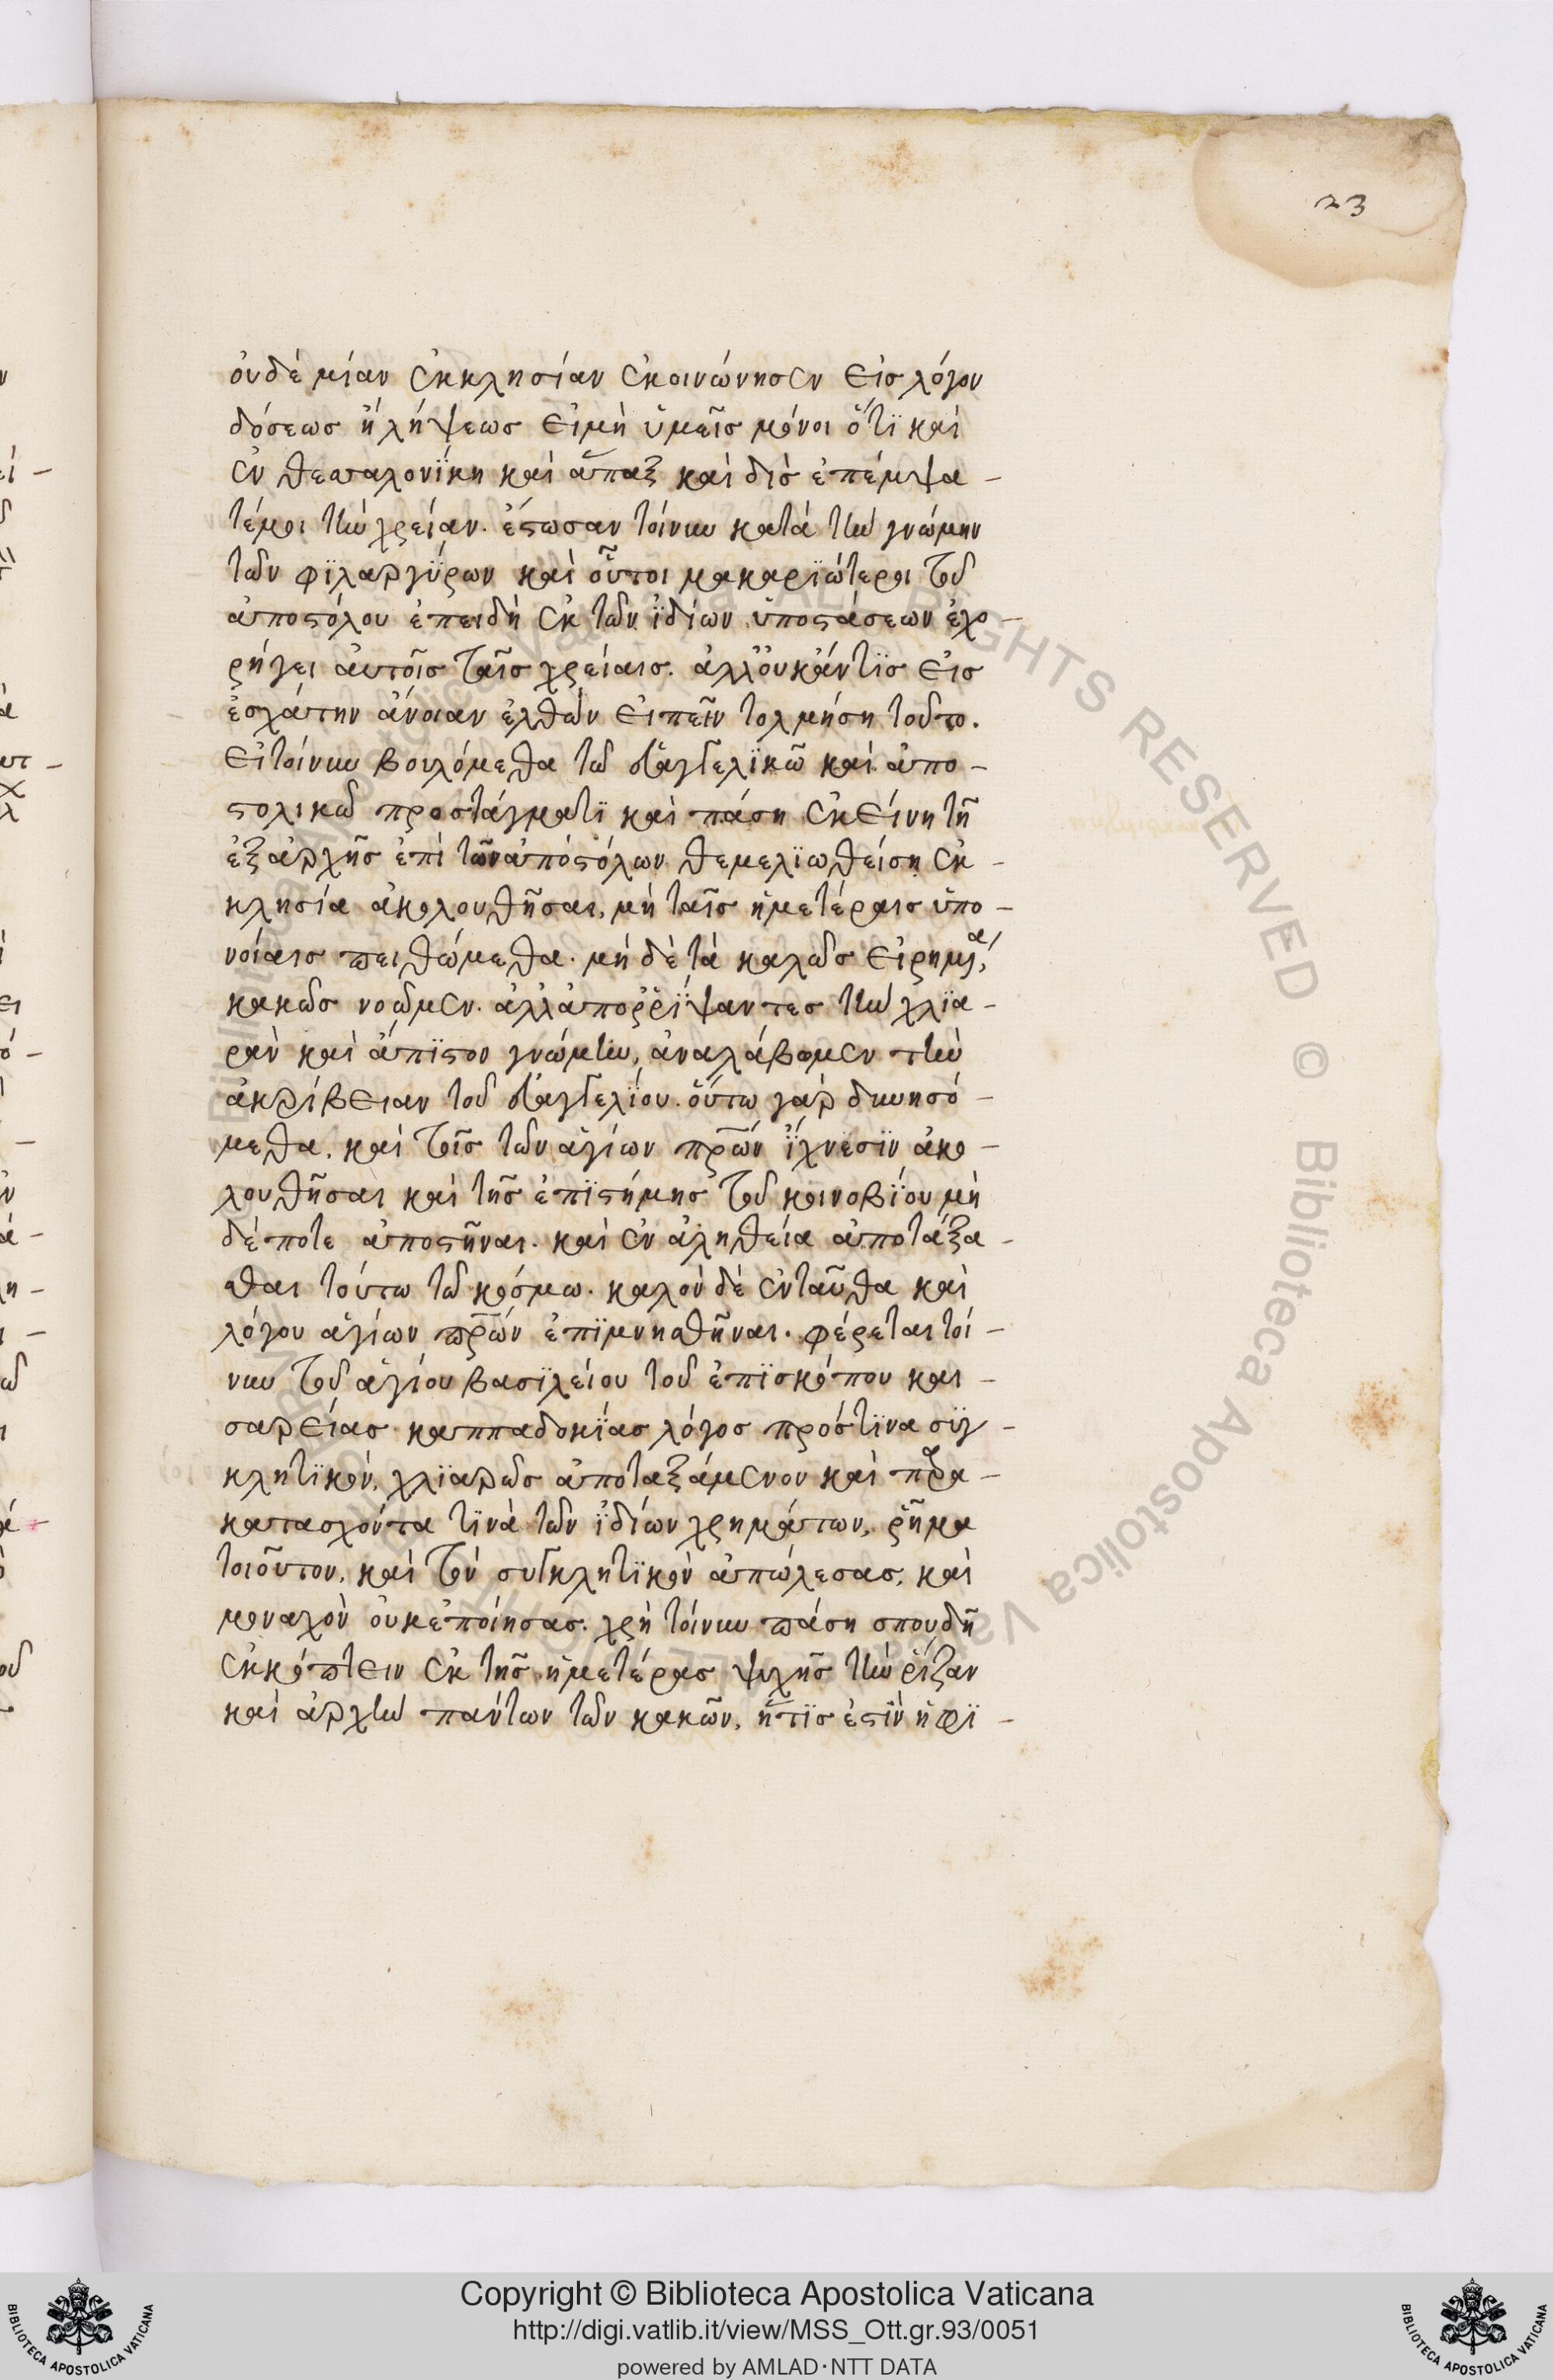 23
οὐδὲ μίαν ἐκκλησίαν ἐκοινώνησεν εἰς λόγον
δόσεως ἢ λήψεως εἰμὴ ὑμεῖς μόνοι ὅτϊ καὶ
ἐν θεσσαλονΐκη καὶ ἅπαξ καὶ δὶς ἐπέμψα -
τέμοι τὴν χρείαν. ἔστωσαν τοίνυν κατὰ τὴν γνώμην
τῶν φϊλαργΰρων καὶ οὗτοι μακαρϊώτεροι τοῦ
ἀποστόλου ἐπειδὴ ἐκ τῶν ἰδίων ὑποστάσεων ἐχο -
ρήγει αὐτοῖς ταῖς χρείαις. ἀλλ' οὐκ ἄν τϊς εἰς
ἐσχάτην ἄνοιαν ἐλθὼν εἰπεῖν τολμήση τοῦτο.
εἰ τοίνυν βουλόμεθα τῶ εὐαγγελϊκῶ καὶ ἀπο -
στολικῶ προστάγματϊ καὶ πάση ἐκείνη τῆ
ἐξαρχῆς ἐπὶ τῶν ἀποστόλων θεμελϊωθείση ἐκ -
κλησία ἀκολουθῆσαι, μὴ ταῖς ἡμετέραις ὑπο -
νοίαις πειθώμεθα. μὴ δὲ τὰ καλῶς εἰρημένα,
κακῶς νοῶμεν. ἀλλ' ἀπορρΐψαντες τὴν χλϊα -
ρὰν καὶ ἄπϊστον γνώμην, ἀναλάβομεν τὴν
ἀκρίβειαν τοῦ εὐαγγελΐου. οὕτω γὰρ δυνησό -
μεθα, καὶ τοῖς τῶν ἁγίων πρῶν ἴχνεσϊν ἀκο -
λουθῆσαι καὶ τῆς ἐπϊστήμης τοῦ κοινοβΐου μὴ
δέποτε ἀποστῆναι. καὶ ἐν ἀληθεία ἀποτάξα -
σθαι τούτω τῶ κόσμω. καλὸν δὲ ἐνταῦθα καὶ
λόγου ἁγίων πρῶν ἐπϊμνησθῆναι. φέρεται τοί -
νυν τοῦ ἁγίου βασϊλείου τοῦ ἐπϊσκόπου και -
σαρείας καππαδοκΐας λόγος πρός τϊνα σϋγ -
κλητϊκόν, χλϊαρῶς ἀποταξάμενον καὶ παρα -
κατασχόντα τϊνὰ τῶν ἰδίων χρημάτων, ῥῆμα
τοιοῦτον, καὶ τὸν συγκλητϊκὸν ἀπώλεσας, καὶ
μοναχὸν οὐκ ἐποίησας. χρὴ τοίνυν πάση σπουδῆ
ἐκκόπτειν ἐκ τῆς ἡμετέρας ψυχῆς τὴν ῥίζαν
καὶ ἀρχὴν πάντων τῶν κακῶν, ἥτϊς ἐστϊν ἡ φϊ -
Copyright © Biblioteca Apostolica Vaticana
http://digi.vatlib.it/view/MSS_Ott.gr.93/0051
powered by AMLAD·NTT DATA